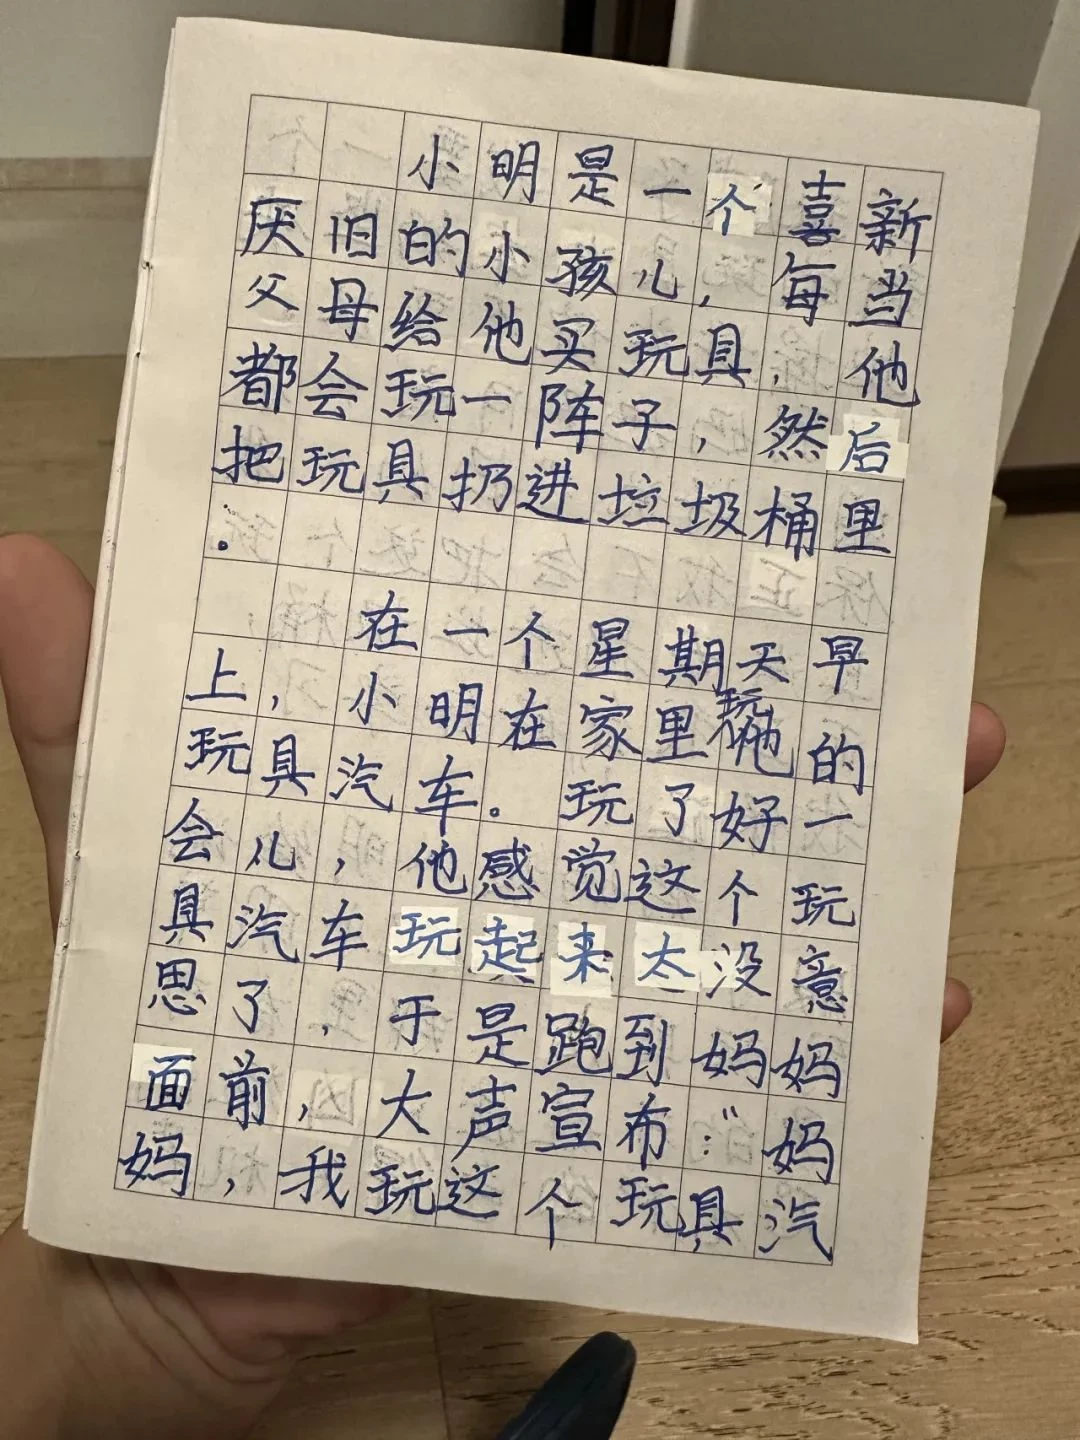 小明是一个喜新
厌旧的小孩儿，每当
父母给他买玩具，他
都会玩一阵子，然后
把玩具扔进垃圾桶里
。
在一个星期天早
上，小明在家里玩他的
玩具汽车。玩了好一
会儿，他感觉这个玩
具汽车玩起来太没意
思了，于是跑到妈妈
面前，大声宣布：“妈
妈，我玩这个玩具汽